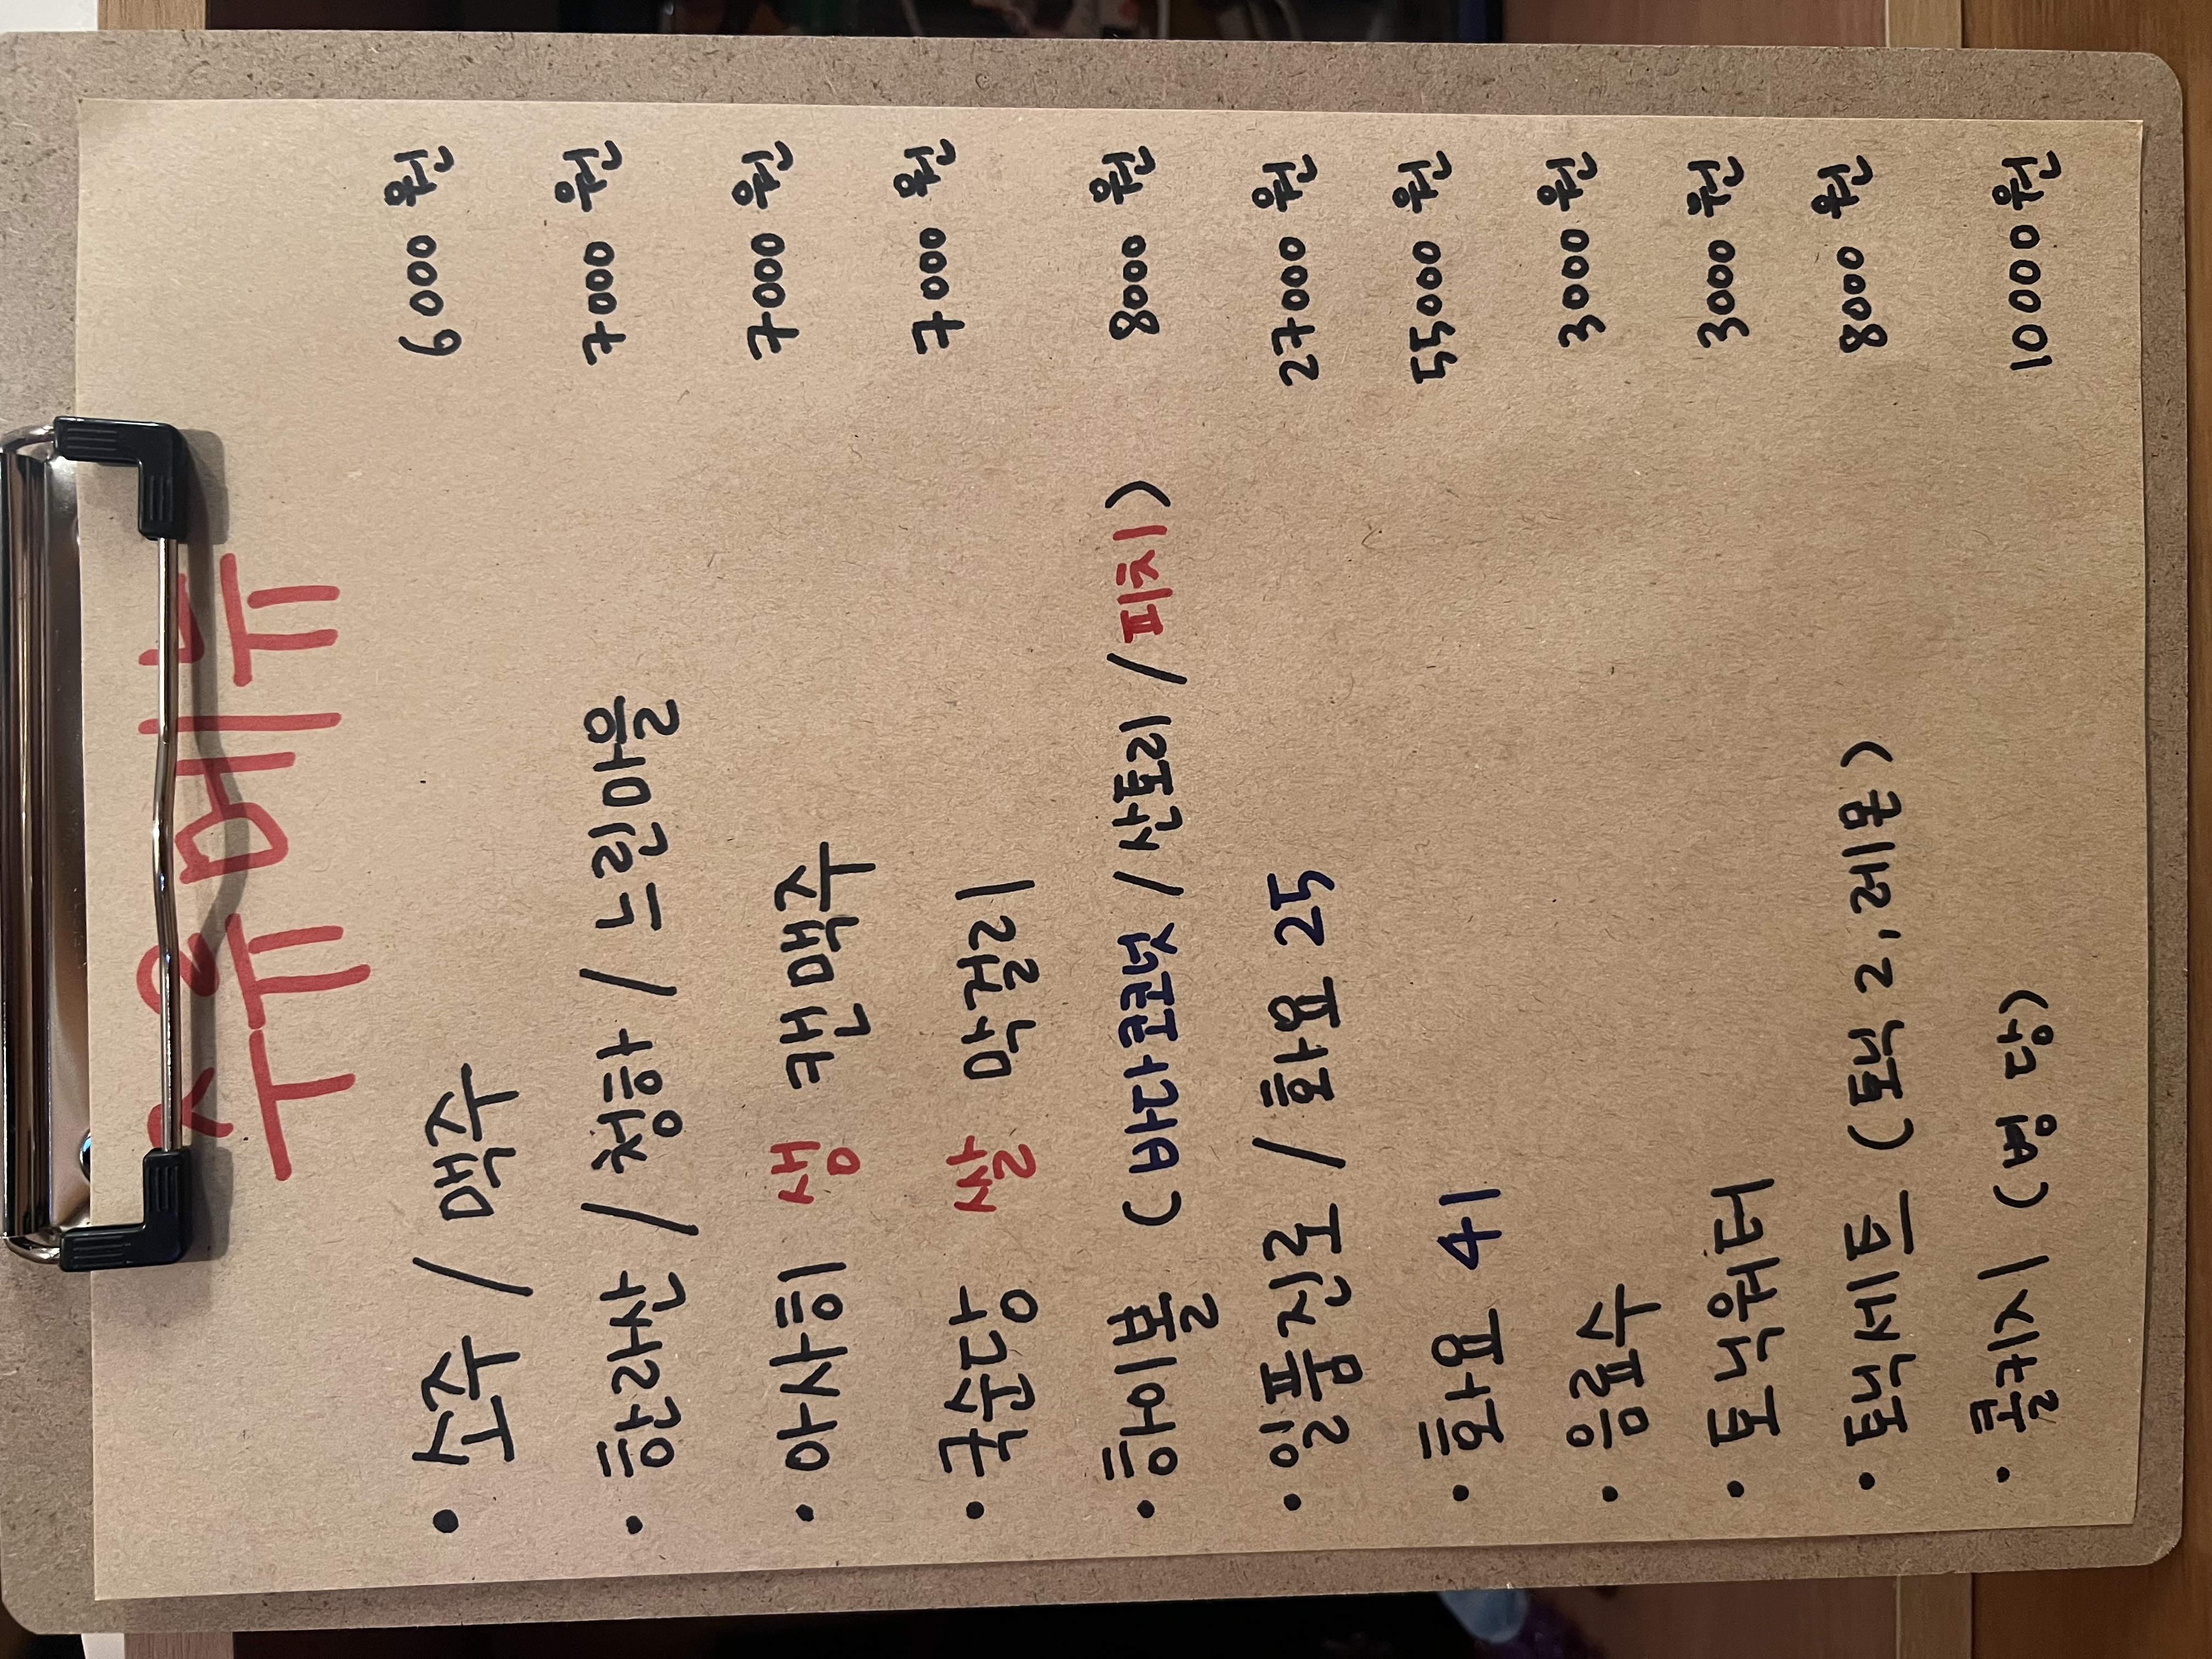 주류메뉴
• 소주 / 맥주 6000 원
• 한라산 / 청하 / 느린마을 7000 원
• 아사히 생 캔맥주 7000 원
• 국순당 쌀 막걸리 7000 원
• 하이볼 ( / 산토리 / 피치) 8000 원
• 일품진로 / 화요 25 27000 원
• 화요 41 55000 원
• 음료수 3000 원
• 토닉워터 3000 원
• 토닉세트 (토닉 2, 레몬) 8000 원
• 콜키지 (병 당) 10000 원